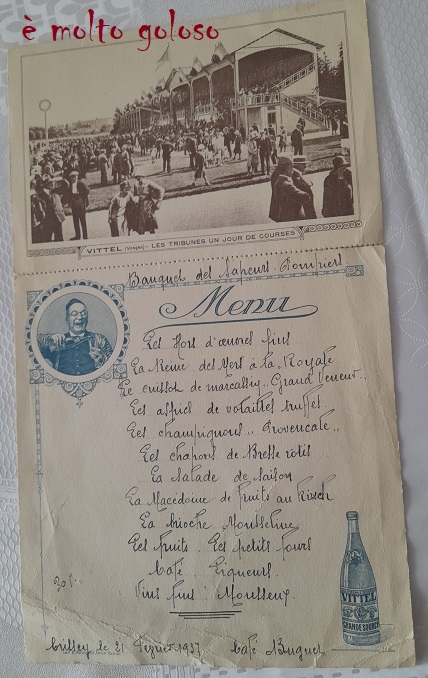 è molto goloso
VITTEL (Vosges) - LES TRIBUNES UN JOUR DE COURSES
Banquet des Sapeurs-Pompiers
Menu
Les Hors d'œuvres fins
La Reine des Mers à la Royale
Le cuissot de marcassin "Grand Veneur"
Les aspics de volailles truffés
Les champignons "Provençale"
Les chapons de Bresse rôtis
La Salade de saison
La Macédoine de fruits au Kirsch
La brioche Mousseline
Les fruits. Les petits fours
Café Liqueurs
Vins fins : Mousseux
VITTEL
GRANDE SOURCE
le 21 Février 1937 Café Buguet